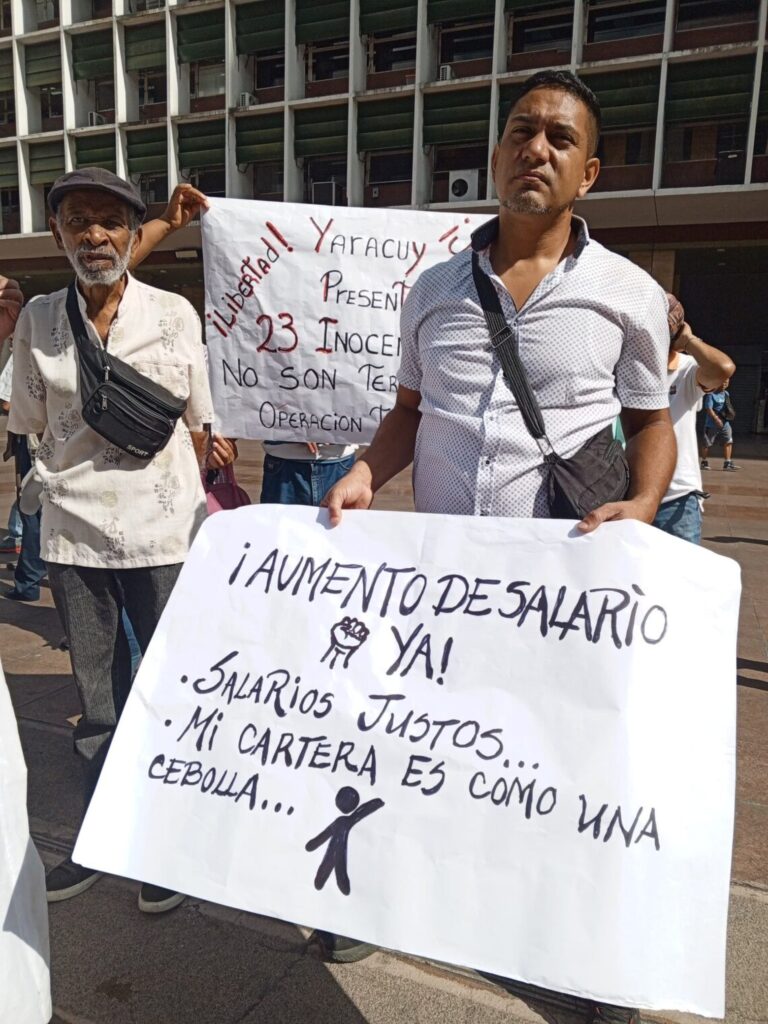 ¡Libertad!
Yaracuy
Present
23 Inocen
No son Ter
Operacion T
SPORT
¡AUMENTO DE SALARIO
YA!
• SALARIOS JUSTOS...
• MI CARTERA ES COMO UNA
CEBOLLA...